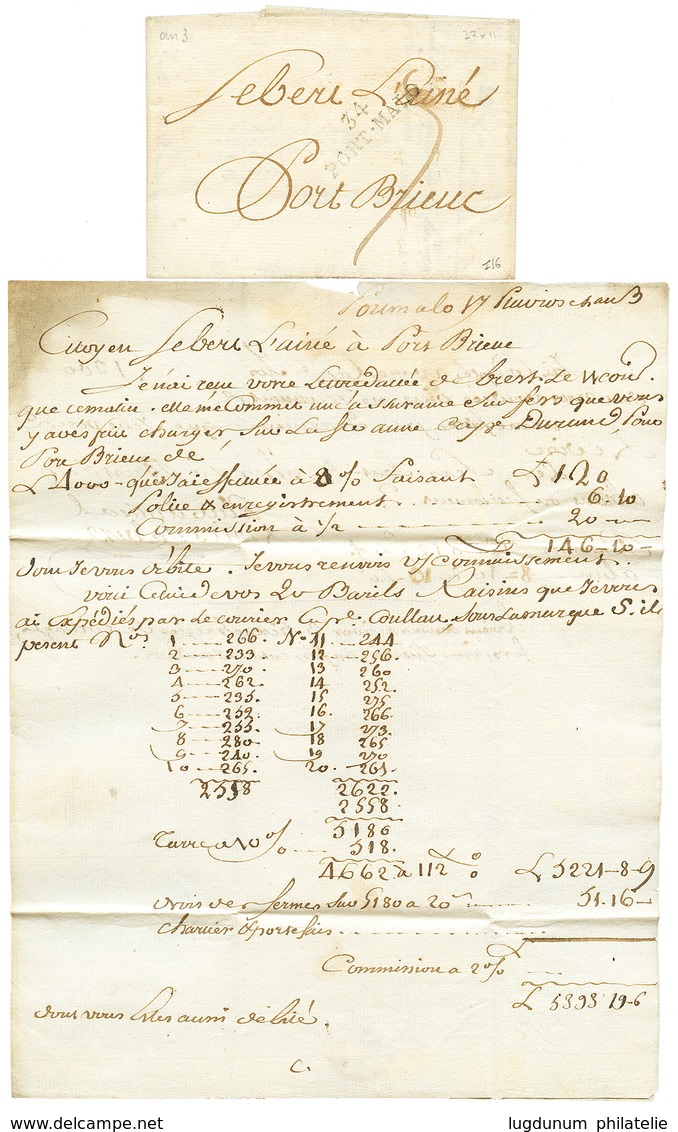 an 3
37 x 11
Sebert L'ainé
34
PORT-MALO
7
Port Brieuc
I16
Pormalo 17 Pluviose an 3
Citoyen Sebert L'ainé à Port Brieuc
J'énai reçu votre Lettre dattée de Brest. Le
que ce matin. elle me Commet une assurance Sur fers que vous
y avés fait charger, Sur La Ste anne Cape Durand Pour
Port Brieuc de
L 4000 - que J'ai effectuée à 3 % faisant L 120
Police & enregistrement 6.10
Commission à 1/2 20
L 146-10-
dont Je vous débite. Je vous renvois Connaissement.
voici Celui de vos 20 Barils Raisins que Je vous
ai Expédiés par Le courier Cape Coullau, Sous La marque S. ils
pesent Nos 1 266 No 11 244
2 233 12 256
3 270 13 260
4 262 14 252
5 235 15 275
6 252 16. 266
7 255 17 273.
8 280 18 265
9 240 19 270
10 265. 20. 261
2558 2622.
2558
5180
Tarre a 10 % 518.
4662 à 112 L % L 5221-8-9
Droits de fermes Sur 5180 a 20 51.16-
Charrier & portefaix
Commission a 2 %
L 5393 19-6
dont vous Etes aussi débité.
C.
www.delcampe.net
lugdunum philatelie